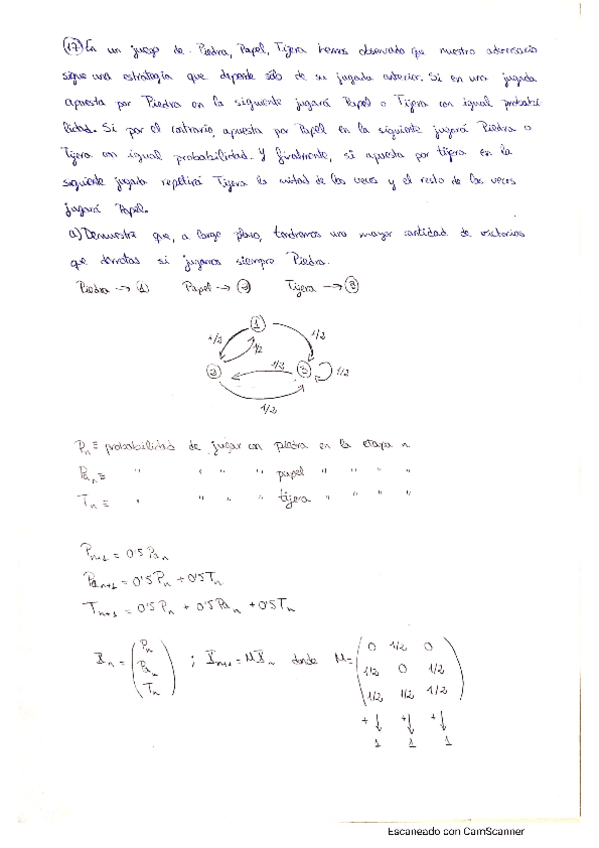 (17) En un juego de Piedra, Papel, Tijera hemos observado que nuestro adversario
sigue una estrategia que depende sólo de su jugada anterior. Si en una jugada
apuesta por Piedra en la siguiente jugará Papel o Tijera con igual probabi-
lidad. Si por el contrario, apuesta por Papel en la siguiente jugará Piedra o
Tijera con igual probabilidad. Y finalmente, si apuesta por tijera en la
siguiente jugada repetirá Tijera la mitad de las veces y el resto de las veces
jugará Papel.
a) Demuestra que, a largo plazo, tendremos una mayor cantidad de victorias
que derrotas si jugamos siempre Piedra.
Piedra → (1) Papel → (2) Tijera → (3)
1
1/2 1/2 1/2
2 1/2 3 1/2
1/2
Pn ≡ probabilidad de jugar con piedra en la etapa n
Pan ≡ " " " " papel " " " "
Tn ≡ " " " " tijera " " " "
Pn+1 = 0'5 Pan
Pan+1 = 0'5 Pn + 0'5 Tn
Tn+1 = 0'5 Pn + 0'5 Pan + 0'5 Tn
Xn = (Pn Pan Tn) ; Xn+1 = M Xn donde M = (0 1/2 0
1/2 0 1/2
1/2 1/2 1/2)
+↓ +↓ +↓
1 1 1
Escaneado con CamScanner